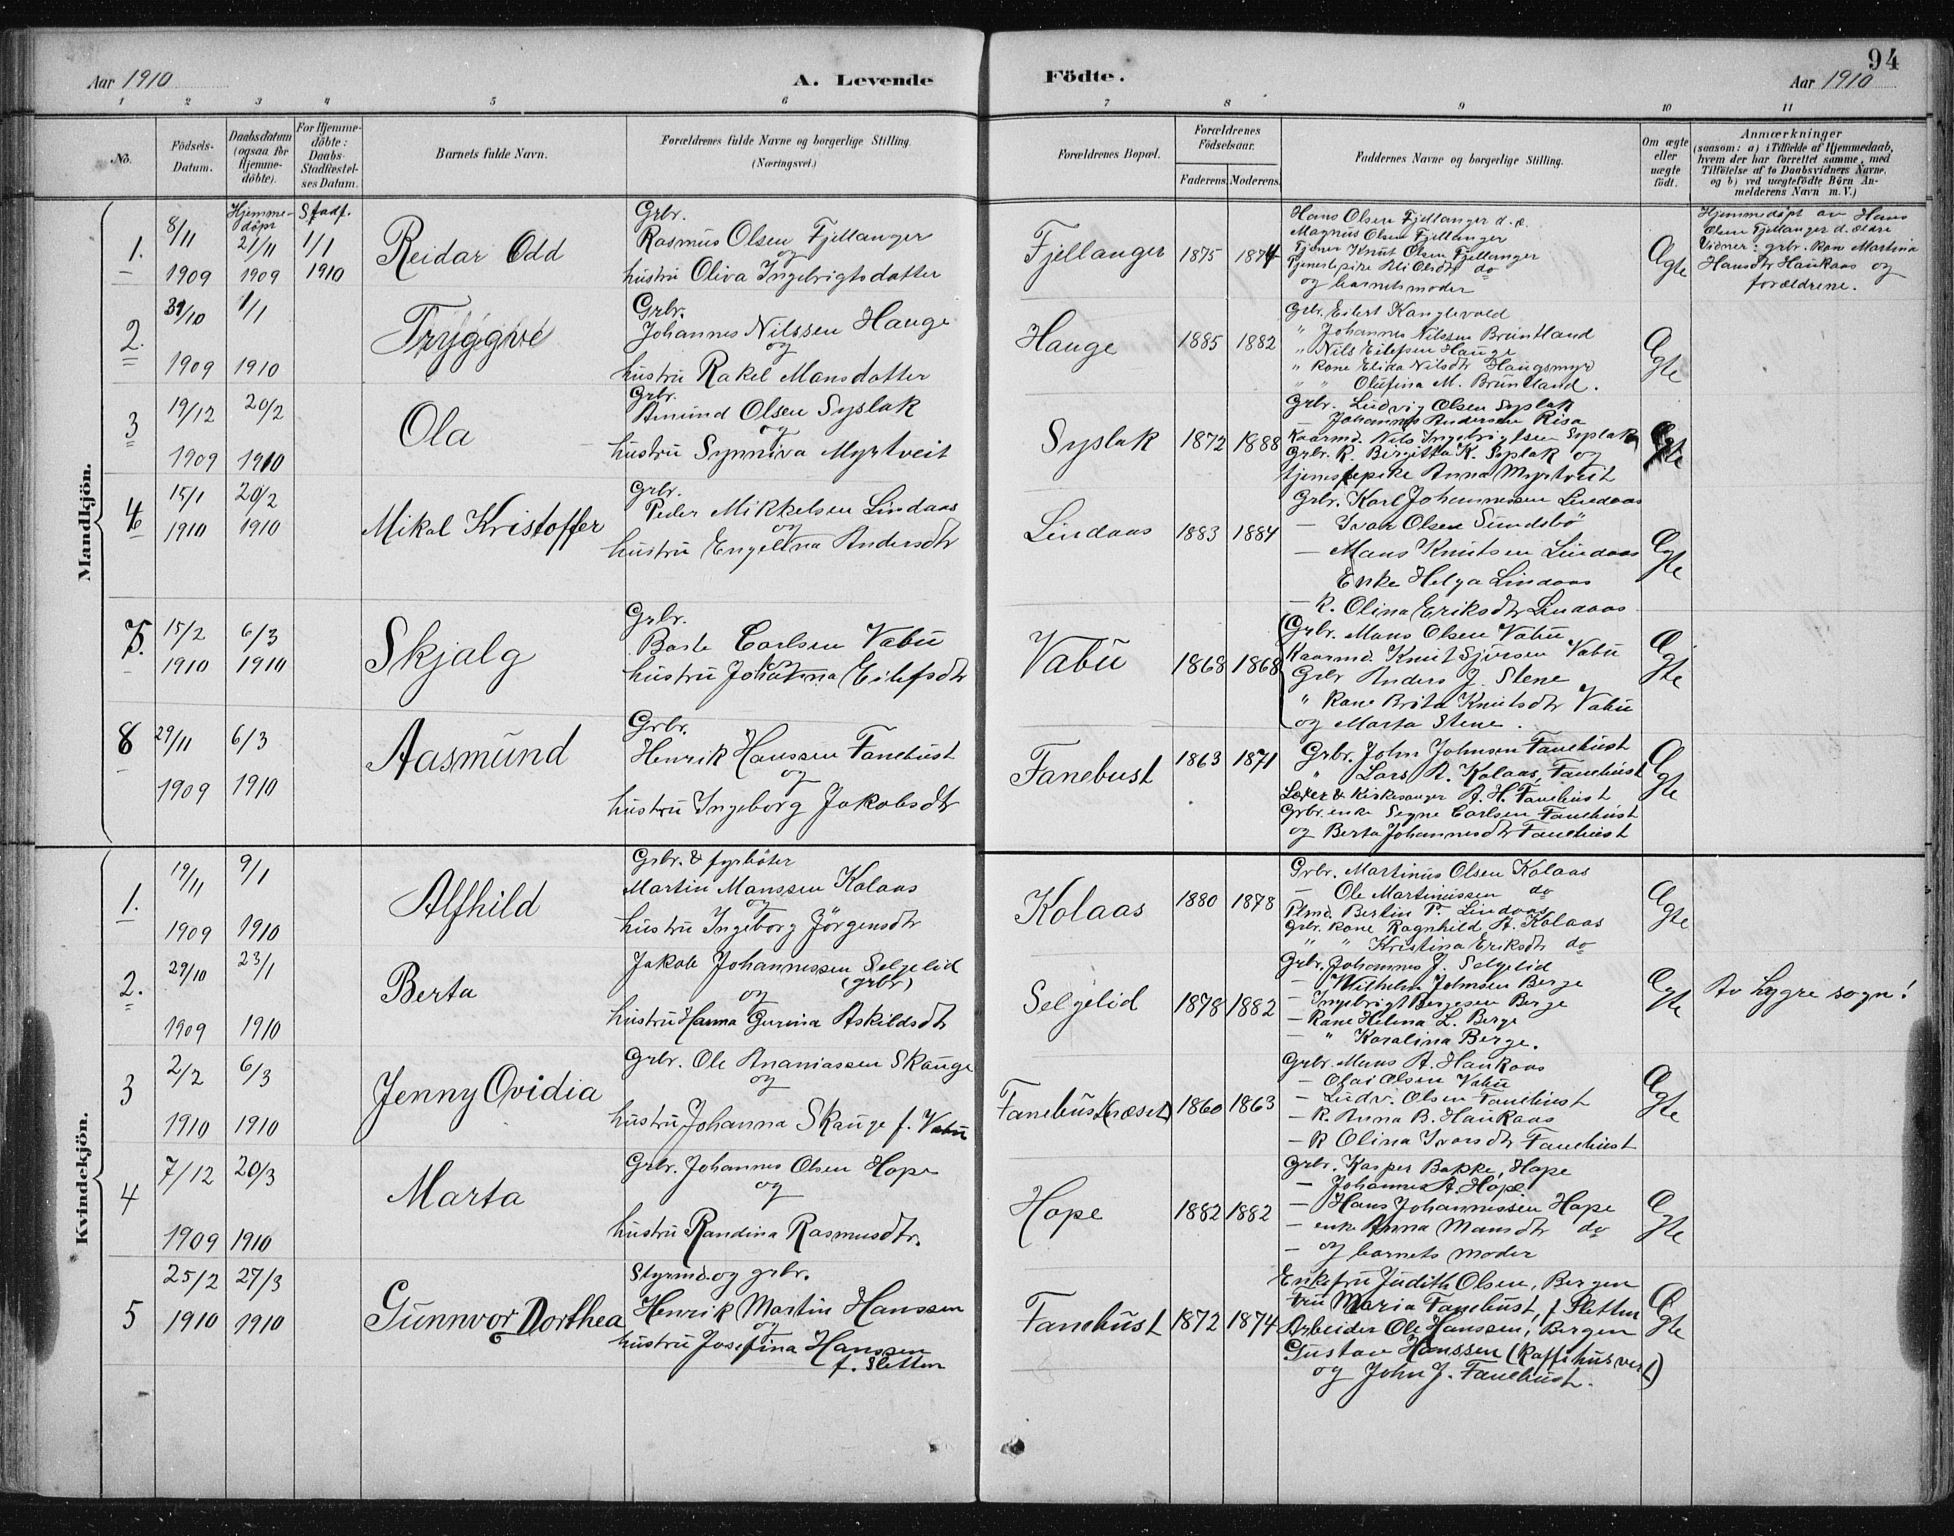 Aar 1910
A. Levende
Födte.
Aar 1910
94
1 2 3 4 5 6 7 8 9 10 11
No.
Födsels-Datum.
Daabsdatum (ogsaa for Hjemme-döbte).
For Hjemme-döbte: Daabs-Stadfæstel-ses Datum.
Barnets fulde Navn.
Forældrenes fulde Navne og borgerlige Stilling.
(Næringsvei.)
Forældrenes Bopæl.
Forældrenes Födselsaar.
Faderens. Moderens.
Faddernes Navne og borgerlige Stilling.
Om ægte eller uægte födt.
Anmærkninger
(saasom: a) i Tilfælde af Hjemmedaab, hvem der har forrettet samme, med Tilföielse af to Daabsvidners Navne. og b) ved uægtefödte Börn An-melderens Navn m. V.)
Mandkjön.
1.
8/11 1909
Hjemme-döpt 21/11 1909
Stadf. 1/1 1910
Reidar Odd
Grbr.
Rasmus Olsen Fjellanger
og
hustru Oliva Ingebrigtsdatter
Fjellanger
1875 1874
Hans Olsen Fjellanger d. æ.
Magnus Olsen Fjellanger
Tjener Knut Olsen Fjellanger
Tjenestepike Ali Olsdtr do
og barnets moder
Ægte
Hjemmedöpt av Hans
Olsen Fjellanger d. ældre
Vidner: grbr. kone Martina
Hansdtr Haukaas og
forældrene.
2.
31/10 1909
1/1 1910
Tryggve
Grbr.
Johannes Nilssen Hauge
og
hustru Rakel Monsdatter
Hauge
1885 1882
Grbr. Eilert Kanglevold
" Johannes Nilssen Bruntland
" Nils Eilefsen Hauge
" Kone Elida Nilsdtr Haugsmyr
" " Olufina M. Bruntland.
Ægte
3
19/12 1909
20/2 1910
Ola
Grbr.
Amund Olsen Syslak
og
hustru Synniva Myrtveit
Syslak
1872 1888
Grbr. Ludvig Olsen Syslak
Johannes Andersen Risa
Kaarmd. Nils Ingebrigtsen Syslak
Grbr. K. Birgitta K. Syslak og
tjenestepike Anna Myrtveit
Ægte
4
15/1 1910
20/2 1910
Mikal Kristoffer
Grbr.
Peder Mikkelsen Lindaas
og
hustru Engelina Andersdtr
Lindaas
1883 1884
Grbr. Karl Johannessen Lindaas
— Ivar Olsen Sundsbö
— Mans Knutsen Lindaas
Enke Helga Lindaas
— K. Olina Eriksdtr Lindaas
Ægte
5.
15/2 1910
6/3 1910
Skjalg
Grbr.
Baste Carlsen Vabu
og
hustru Johanna Eilefsdtr
Vabu
1868 1868
Grbr. Mans Olsen Vabu
Kaarmd. Knut Sjursen Vabu
Grbr Anders J. Stene
" Kone Brita Knutsdtr Vabu
og Marta Stene.
Ægte
8
29/11 1909
6/3 1910
Aasmund
Grbr.
Henrik Hanssen Fanebust
og
hustru Ingeborg Jakobsdtr
Fanebust
1863 1871
Grbr. John Johnsen Fanebust
" Lars A. Kolaas, Fanebust
Lærer & Kirkesanger A. H. Fanebust
Grbr. enke Signe Carlsen Fanebust
og Berta Johannesdtr Fanebust
Ægte
Kvindekjön.
1.
19/11 1909
9/1 1910
Alfhild
Grbr. & fyrböter
Martin Monssen Kolaas
og
hustru Ingeborg Jörgensdtr
Kolaas
1880 1878
Grbr. Martinus Olsen Kolaas
— Ole Martinussen do
Plmd. Bertin P. Lindaas
Grbr. kone Ragnhild A. Kolaas
" " Kristina Eriksdtr do
Ægte
2.
29/10 1909
23/1 1910
Berta
Jakob Johannessen Selgelid
(grbr)
og
hustru Hanna Gurina Askildsdtr
Selgelid
1878 1882
Grbr. Johannes J. Selgelid
— Wilhelm Johnsen Berge
— Ingebrigt Bergesen Berge
— Kone Helina L. Berge
— " Karalina Berge.
Ægte
Av Lygre sogn!
3
2/2 1910
6/3 1910
Jenny Ovidia
Grbr. Ole Ananiassen Skauge
og
hustru Johanna Skauge f. Vabu
Fanebust(næset)
1860 1863
Grbr. Mans A. Haukaas
— Olai Olsen Vabu
— Ludv. Olsen Fanebust
— K. Anna B. Haukaas
— K Olina Ivarsdtr Fanebust
Ægte
4
7/12 1909
20/3 1910
Marta
Grbr. Johannes Olsen Hope
og
hustru Randina Rasmusdtr.
Hope
1882 1882
Grbr. Kasper Bakke, Hope
— Johannes A. Hope.
— Hans Johannessen Hope
— enke Anna Mansdtr do
— og barnets moder
Ægte
5
25/2 1910
27/3 1910
Gunnvor Dorthea
Styrmd. og grbr.
Henrik Martin Hanssen
og
hustru Josefina Hanssen
f. Sletten
Fanebust
1872 1874
Enkefru Judith Olsen, Bergen
Fru Maria Fanebust, f Sletten
Arbeider Ole Hanssen, Bergen
Gustav Hanssen (Kaffihusvert)
og John J. Fanebust.
Ægte